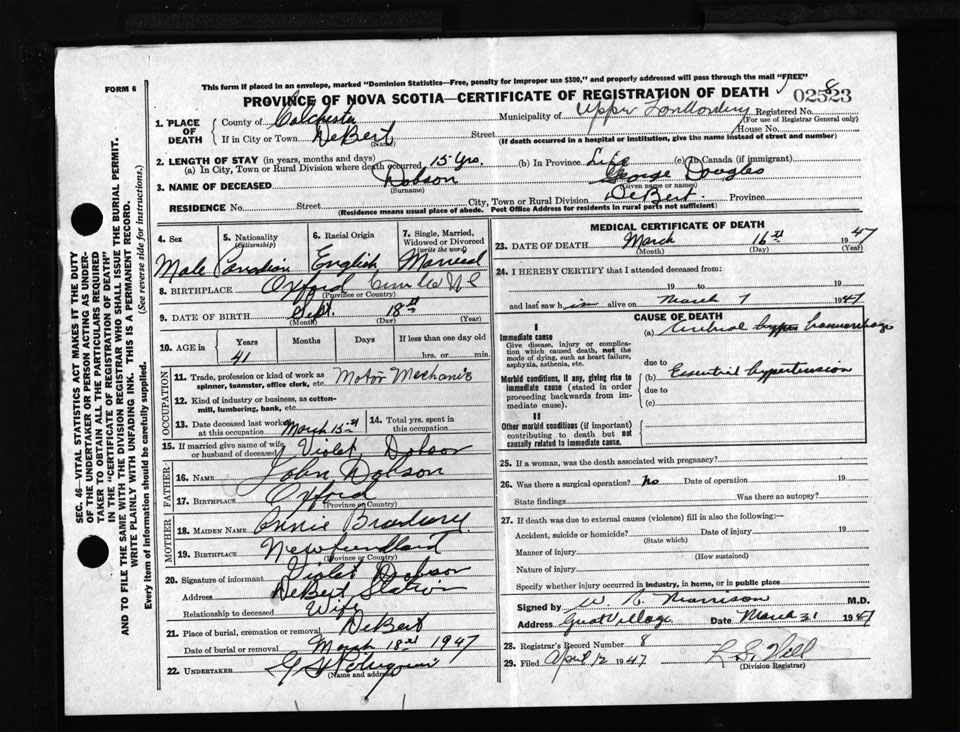 FORM 6
This form if placed in an envelope, marked "Dominion Statistics—Free, penalty for improper use $300," and properly addressed will pass through the mail "FREE"
PROVINCE OF NOVA SCOTIA—CERTIFICATE OF REGISTRATION OF DEATH
8
02523
1. PLACE OF DEATH
County of Colchester
Municipality of Upper Londonderry
Registered No.
(For use of Registrar General only)
If in City or Town DeBert
(Name)
Street
House No.
(If death occurred in a hospital or institution, give the name instead of street and number)
2. LENGTH OF STAY (in years, months and days)
(a) In City, Town or Rural Division where death occurred 15 Yrs. (b) In Province Life (c) In Canada (if immigrant)
3. NAME OF DECEASED Dobson George Douglas
(Surname) (Given name or names)
RESIDENCE No. Street City, Town or Rural Division DeBert Province
(Residence means usual place of abode. Post Office Address for residents in rural parts not sufficient)
4. Sex
Male
5. Nationality
(Citizenship)
Canadian
6. Racial Origin
English
7. Single, Married, Widowed or Divorced
(write the word)
Married
8. BIRTHPLACE Oxford
(Province or Country)
9. DATE OF BIRTH Sept. 18th
(Month) (Day) (Year)
10. AGE in
Years
41
Months
Days
If less than one day old
hrs. or min.
OCCUPATION
11. Trade, profession or kind of work as spinner, teamster, office clerk, etc. Motor Mechanic
12. Kind of industry or business, as cotton-mill, lumbering, bank, etc.
13. Date deceased last worked at this occupation March 15
14. Total yrs. spent in this occupation
15. If married give name of wife or husband of deceased Violet Dobson
FATHER
16. NAME John Dobson
17. BIRTHPLACE Oxford
(Province or Country)
MOTHER
18. MAIDEN NAME Annie Bradbury
19. BIRTHPLACE Newfundland
(Province or Country)
20. Signature of informant Violet Dobson
Address DeBert Station
Relationship to deceased Wife
21. Place of burial, cremation or removal DeBert
Date of burial or removal March 18 1947
22. UNDERTAKER
(Name and address)
MEDICAL CERTIFICATE OF DEATH
23. DATE OF DEATH March 16th 1947
(Month) (Day) (Year)
24. I HEREBY CERTIFY that I attended deceased from:
19 to 19
and last saw h im alive on March 7 1947
CAUSE OF DEATH
I
Immediate cause
Give disease, injury or complication which caused death, not the mode of dying, such as heart failure, asphyxia, asthenia, etc.
(a) haemorrhage
due to
Morbid conditions, if any, giving rise to immediate cause (stated in order proceeding backwards from immediate cause).
(b) Essential hypertension
due to
(c)
II
Other morbid conditions (if important) contributing to death but not causally related to immediate cause.
25. If a woman, was the death associated with pregnancy?
26. Was there a surgical operation? No Date of operation 19
State findings Was there an autopsy?
27. If death was due to external causes (violence) fill in also the following:—
Accident, suicide or homicide? Date of injury 19
(State which)
Manner of injury
(How sustained)
Nature of injury
Specify whether injury occurred in industry, in home, or in public place
Signed by Morrison M.D.
Address Great Village Date March 21 1947
28. Registrar's Record Number 8
29. Filed April 12 1947
(Division Registrar)
SEC. 46—VITAL STATISTICS ACT MAKES IT THE DUTY
OF THE UNDERTAKER OR PERSON ACTING AS UNDER-
TAKER TO OBTAIN ALL THE PARTICULARS REQUIRED
IN THE "CERTIFICATE OF REGISTRATION OF DEATH"
AND TO FILE THE SAME WITH THE DIVISION REGISTRAR WHO SHALL ISSUE THE BURIAL PERMIT.
WRITE PLAINLY WITH UNFADING INK. THIS IS A PERMANENT RECORD.
Every item of information should be carefully supplied. (See reverse side for instructions.)